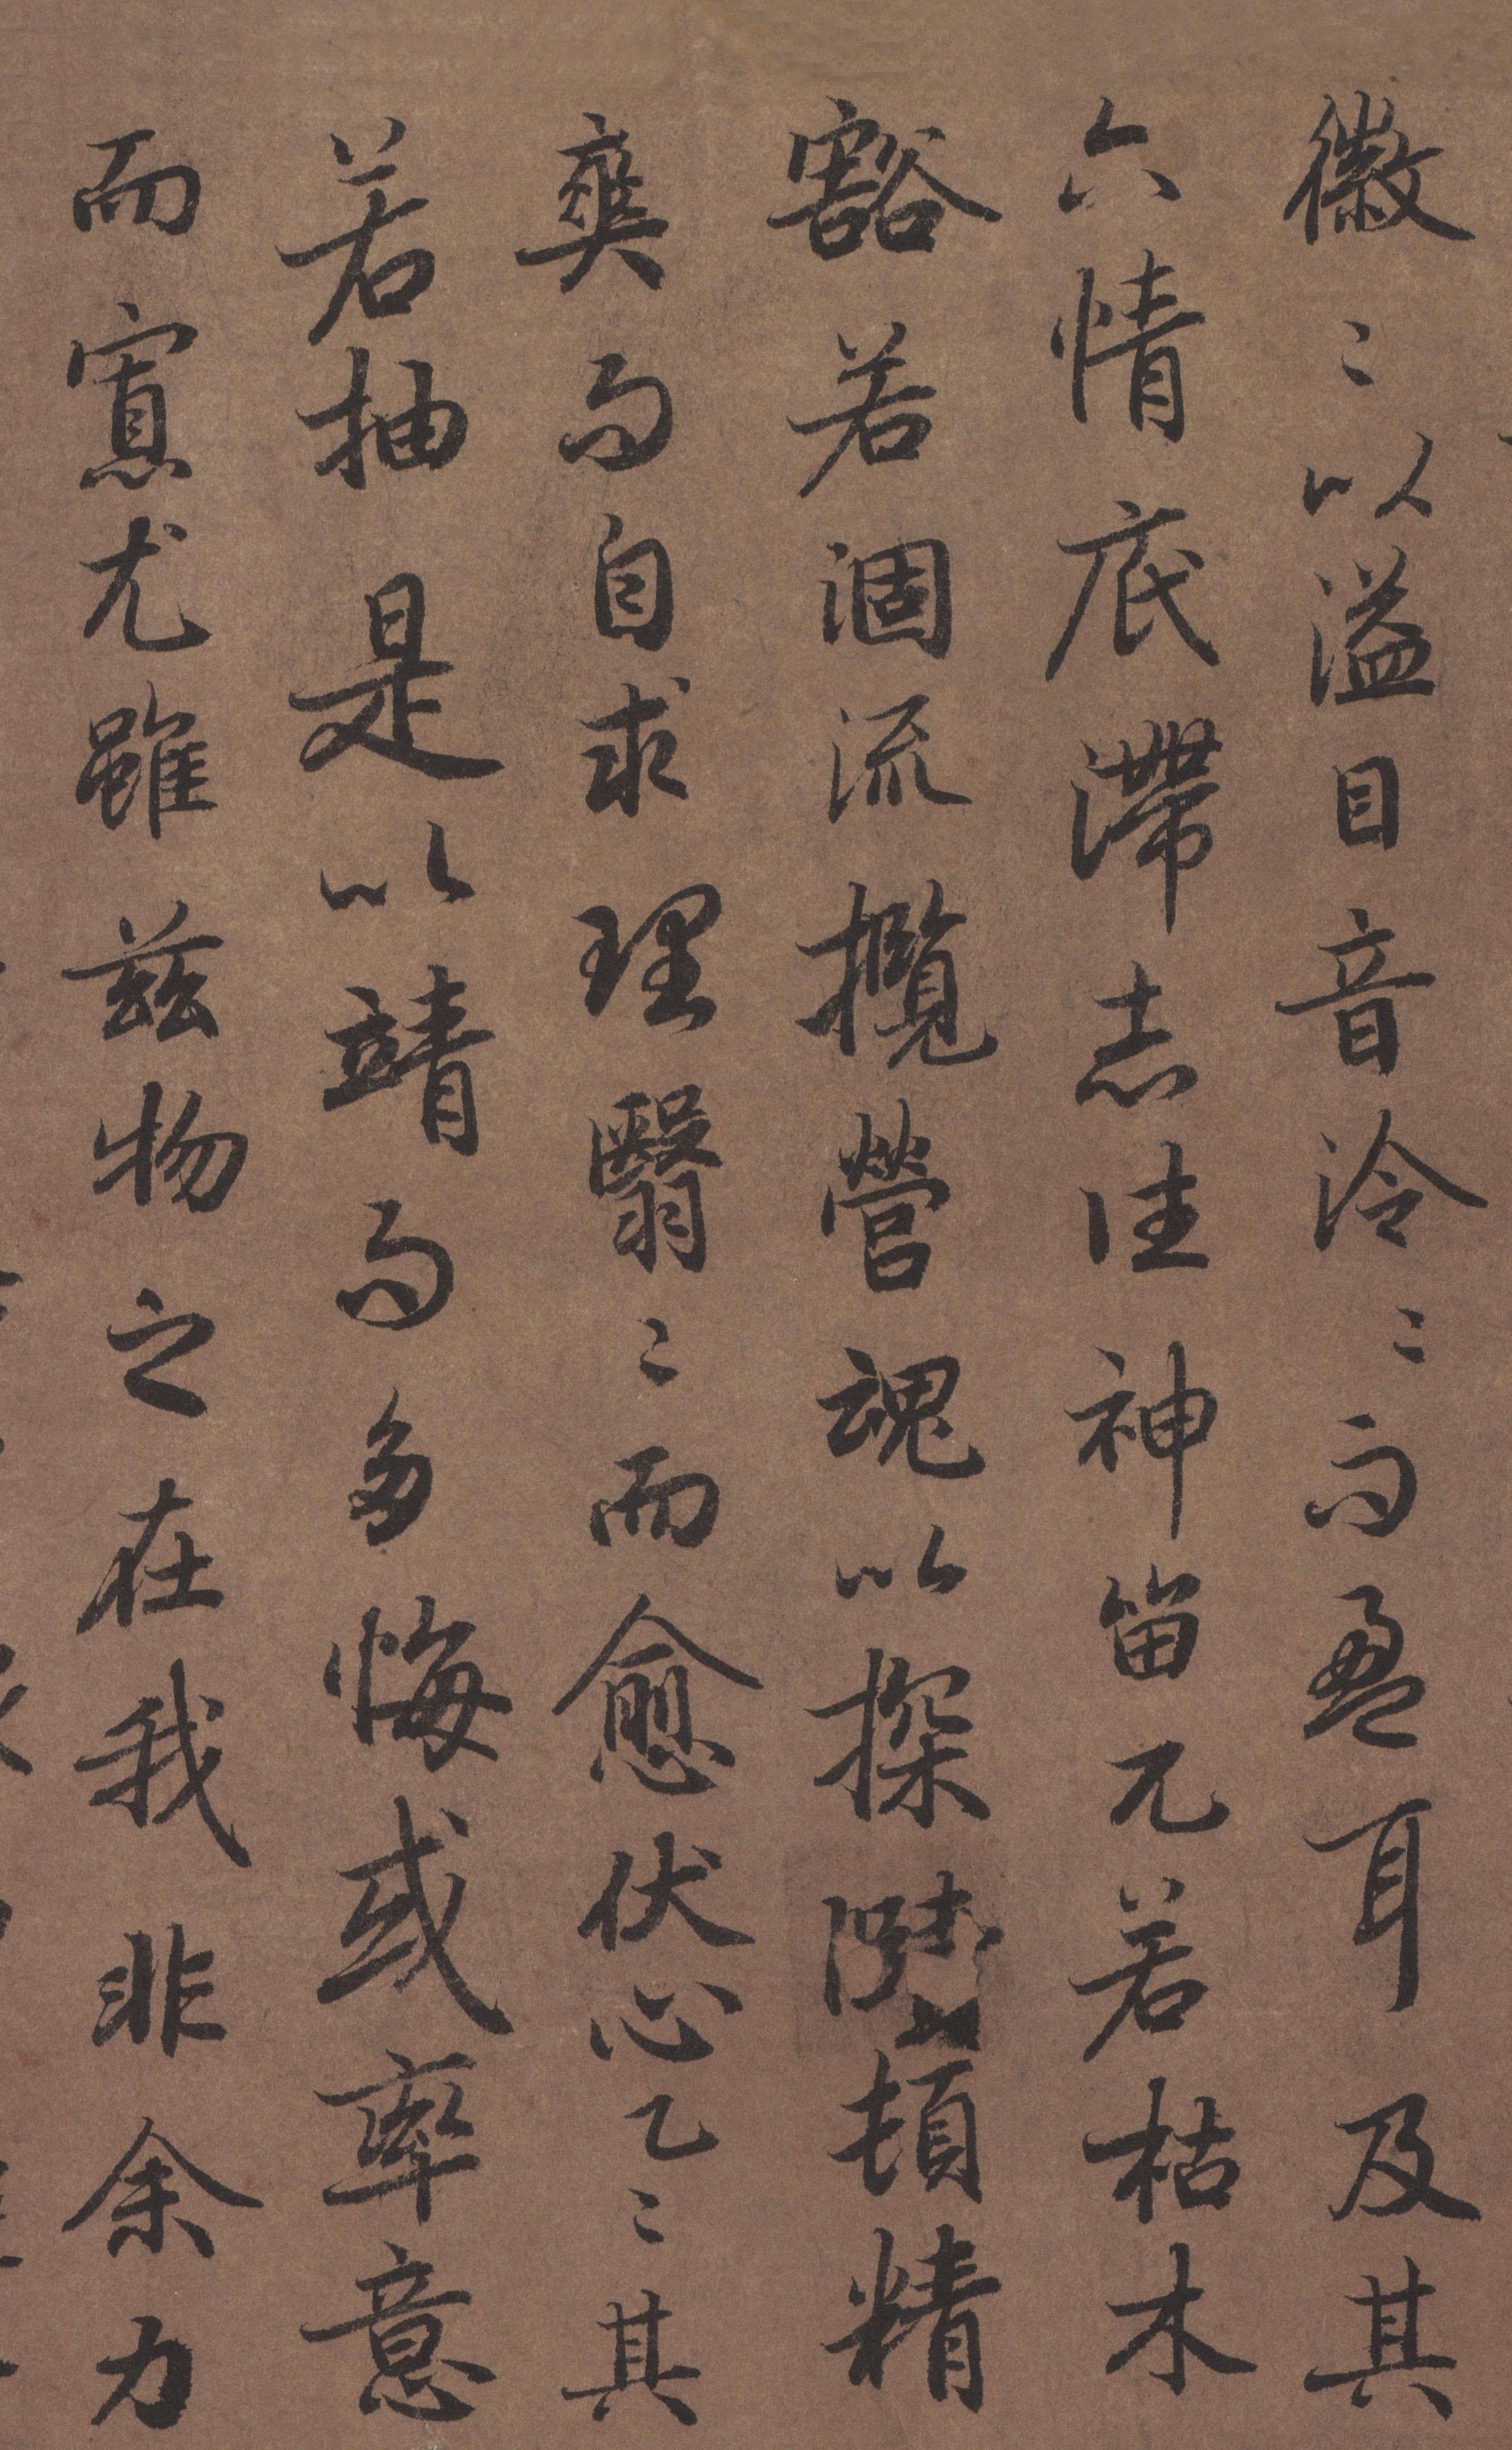 徽〻以溢目音泠〻而盈耳及其
六情底滯志往神留兀若枯木
豁若涸流攬營魂以探賾頓精
爽而自求理翳〻而愈伏心乙〻其
若抽是以竭而多悔或率意
而寡尤雖茲物之在我非余力